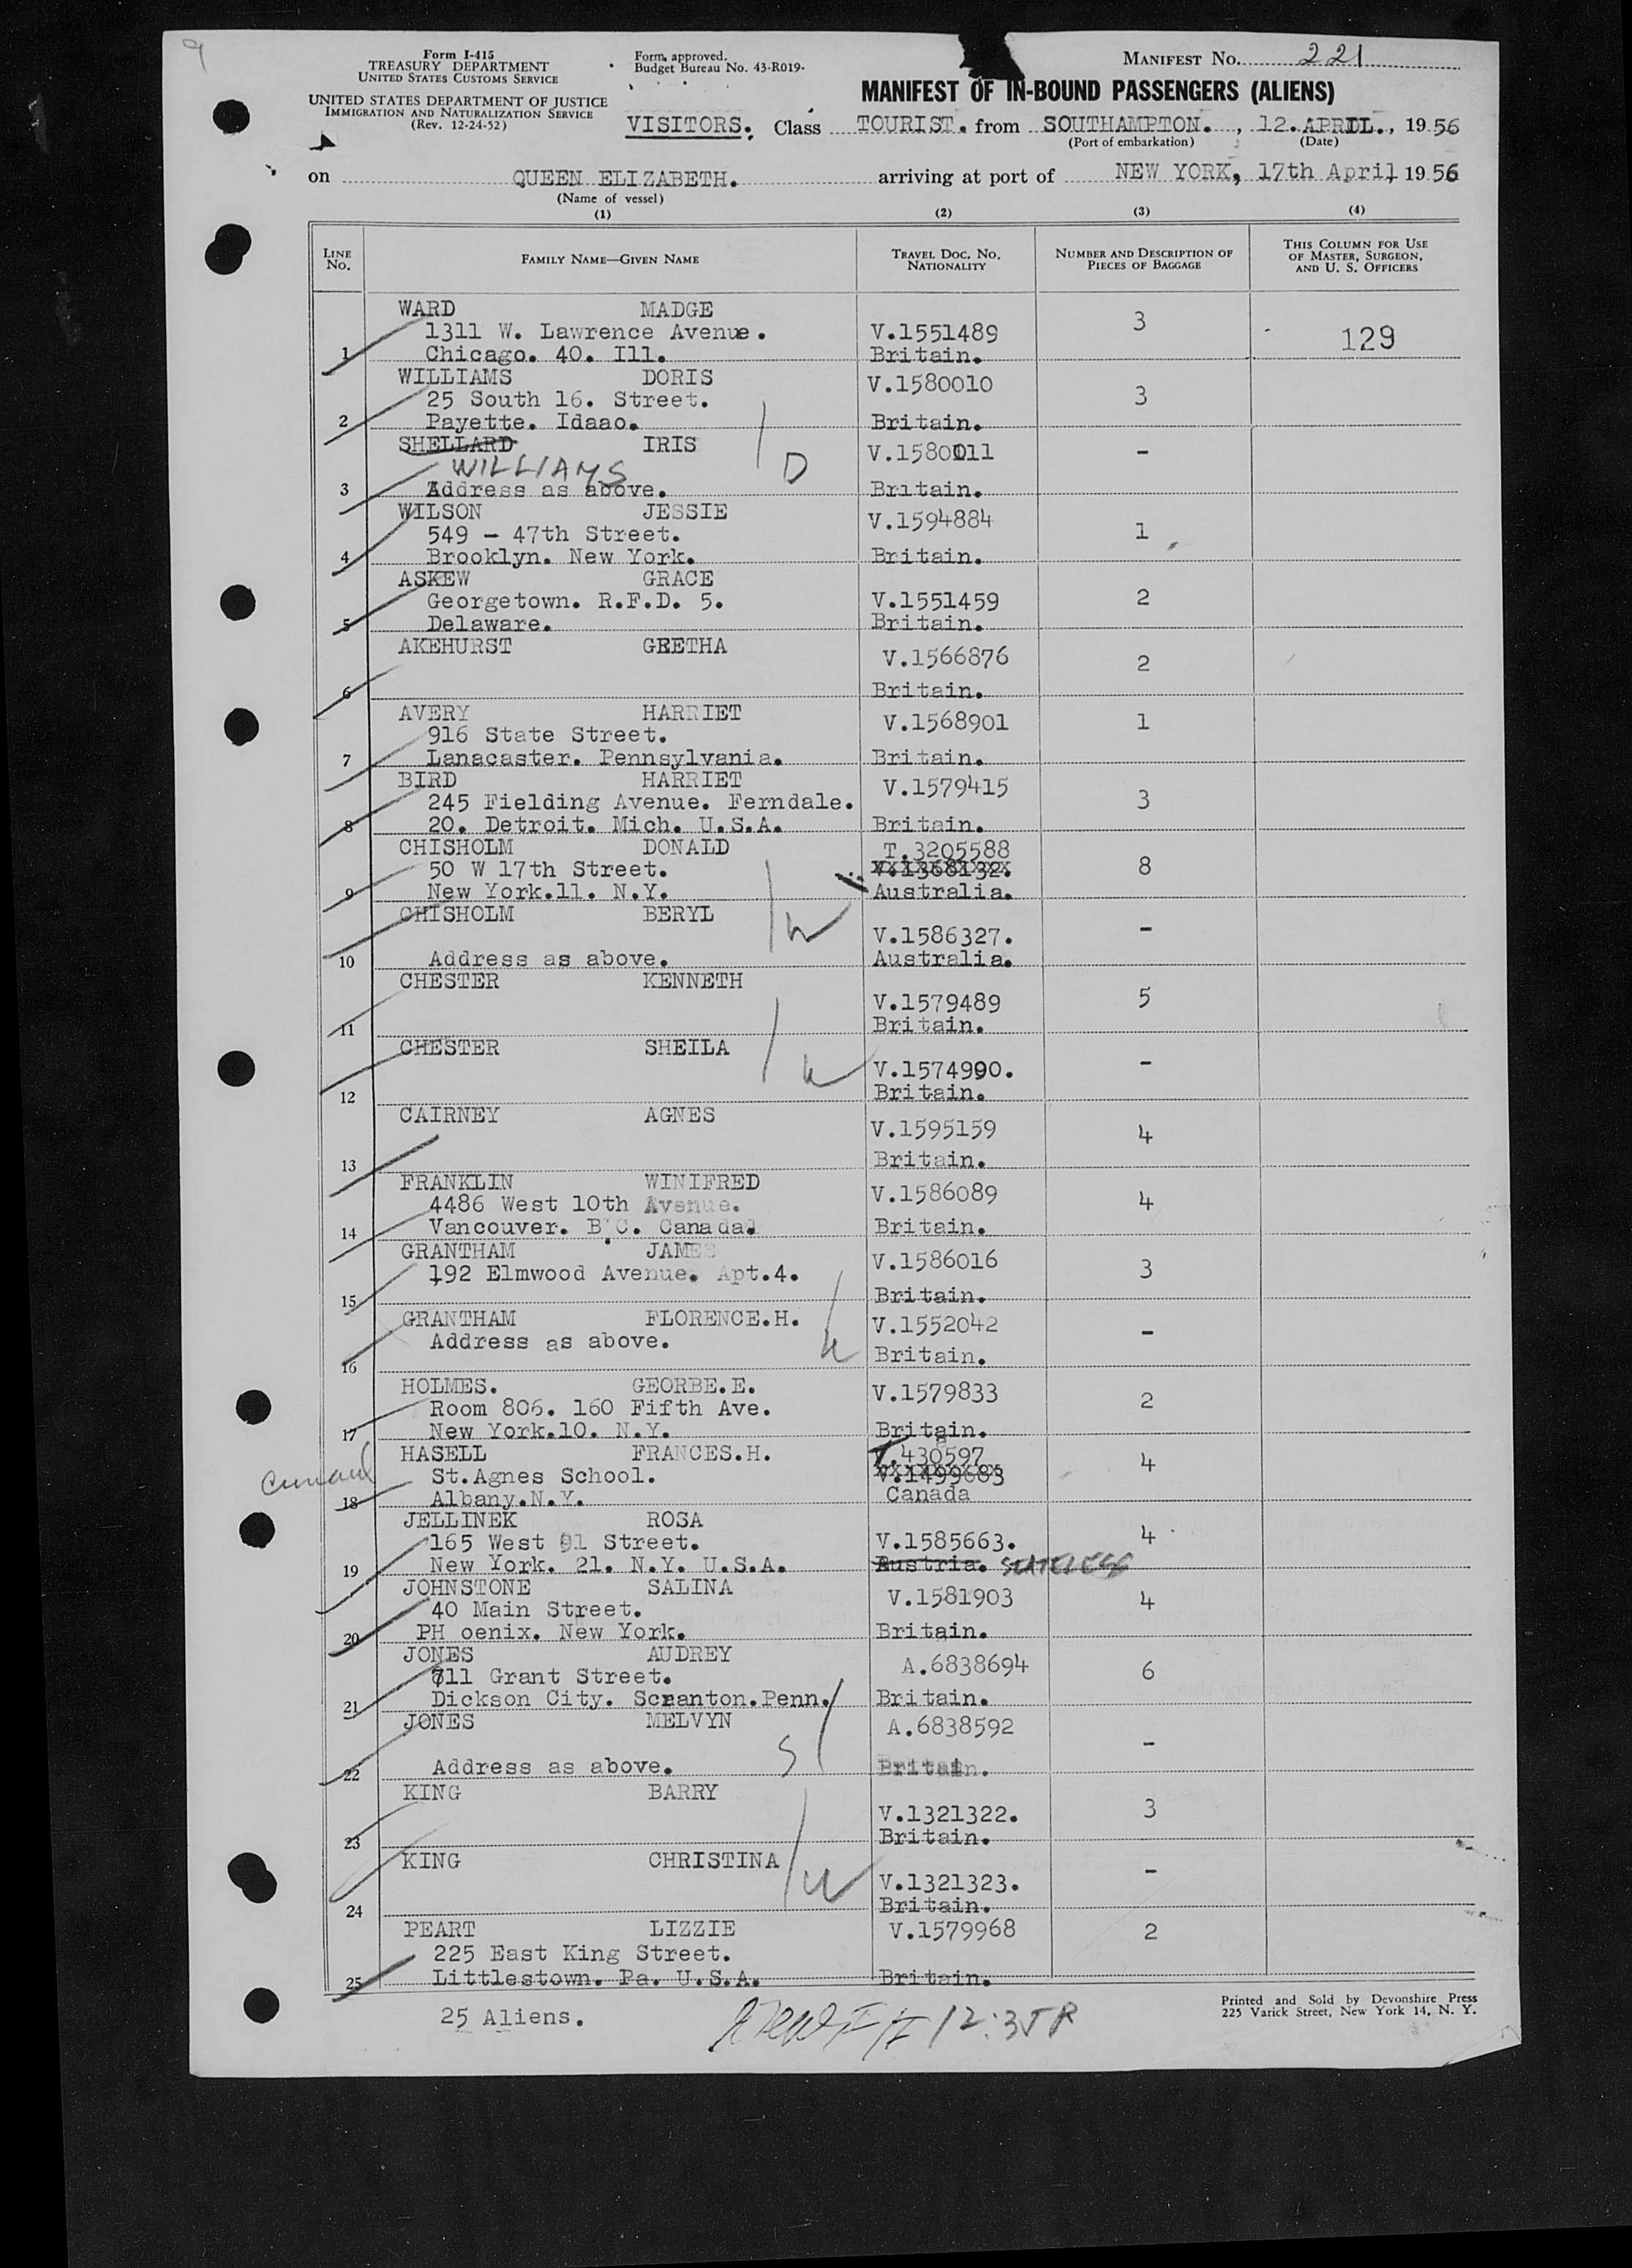 9
Form I-415
TREASURY DEPARTMENT
UNITED STATES CUSTOMS SERVICE
UNITED STATES DEPARTMENT OF JUSTICE
IMMIGRATION AND NATURALIZATION SERVICE
(Rev. 12-24-52)
Form approved.
Budget Bureau No. 43-R019-
MANIFEST NO. 221
MANIFEST OF IN-BOUND PASSENGERS (ALIENS)
VISITORS. Class TOURIST. from SOUTHAMPTON., 12. APRIL., 1956
(Port of embarkation) (Date)
on QUEEN ELIZABETH. arriving at port of NEW YORK, 17th April 1956
(Name of vessel)
(1) (2) (3) (4)
LINE NO. FAMILY NAME—GIVEN NAME TRAVEL DOC. NO. NATIONALITY NUMBER AND DESCRIPTION OF PIECES OF BAGGAGE THIS COLUMN FOR USE OF MASTER, SURGEON, AND U. S. OFFICERS
WARD MADGE 3
1311 W. Lawrence Avenue. V.1551489 129
1 Chicago. 40. Ill. Britain.
WILLIAMS DORIS V.1580010
25 South 16. Street. 3
2 Payette. Idaao. Britain.
SHELLARD IRIS V.1580011 -
WILLIAMS D
3 Address as above. Britain.
WILSON JESSIE V.1594884
549 - 47th Street. 1
4 Brooklyn. New York. Britain.
ASKEW GRACE
Georgetown. R.F.D. 5. V.1551459 2
5 Delaware. Britain.
AKEHURST GRETHA V.1566876 2
6 Britain.
AVERY HARRIET V.1568901 1
916 State Street.
7 Lanacaster. Pennsylvania. Britain.
BIRD HARRIET V.1579415
245 Fielding Avenue. Ferndale. 3
8 20. Detroit. Mich. U.S.A. Britain.
CHISHOLM DONALD T.3205588
50 W 17th Street. V.1368132. 8
9 New York.11. N.Y. Australia.
CHISHOLM BERYL -
W V.1586327.
10 Address as above. Australia.
CHESTER KENNETH 5
V.1579489
11 Britain.
CHESTER SHEILA -
W V.1574990.
12 Britain.
CAIRNEY AGNES V.1595159 4
13 Britain.
FRANKLIN WINIFRED V.1586089
4486 West 10th Avenue. 4
14 Vancouver. B.C. Canada. Britain.
GRANTHAM JAMES V.1586016
192 Elmwood Avenue. Apt.4. 3
15 Britain.
GRANTHAM FLORENCE.H. V.1552042 -
Address as above. W
16 Britain.
HOLMES. GEORBE.E. V.1579833
Room 806. 160 Fifth Ave. 2
17 New York.10. N.Y. Britain.
HASELL FRANCES.H. T.430597 4
St.Agnes School.
18 Albany.N.Y. Canada
JELLINEK ROSA 4
165 West 91 Street. V.1585663.
19 New York. 21. N.Y. U.S.A. Austria. STATELESS
JOHNSTONE SALINA V.1581903 4
40 Main Street.
20 PH oenix. New York. Britain.
JONES AUDREY A.6838694 6
711 Grant Street.
21 Dickson City. Scranton.Penn. Britain.
JONES MELVYN A.6838592 -
S
22 Address as above. Britain.
KING BARRY 3
V.1321322.
23 Britain.
KING CHRISTINA -
W V.1321323.
24 Britain.
PEART LIZZIE V.1579968 2
225 East King Street.
25 Littlestown. Pa. U.S.A. Britain.
25 Aliens.
12:35
Printed and Sold by Devonshire Press
225 Varick Street, New York 14, N. Y.